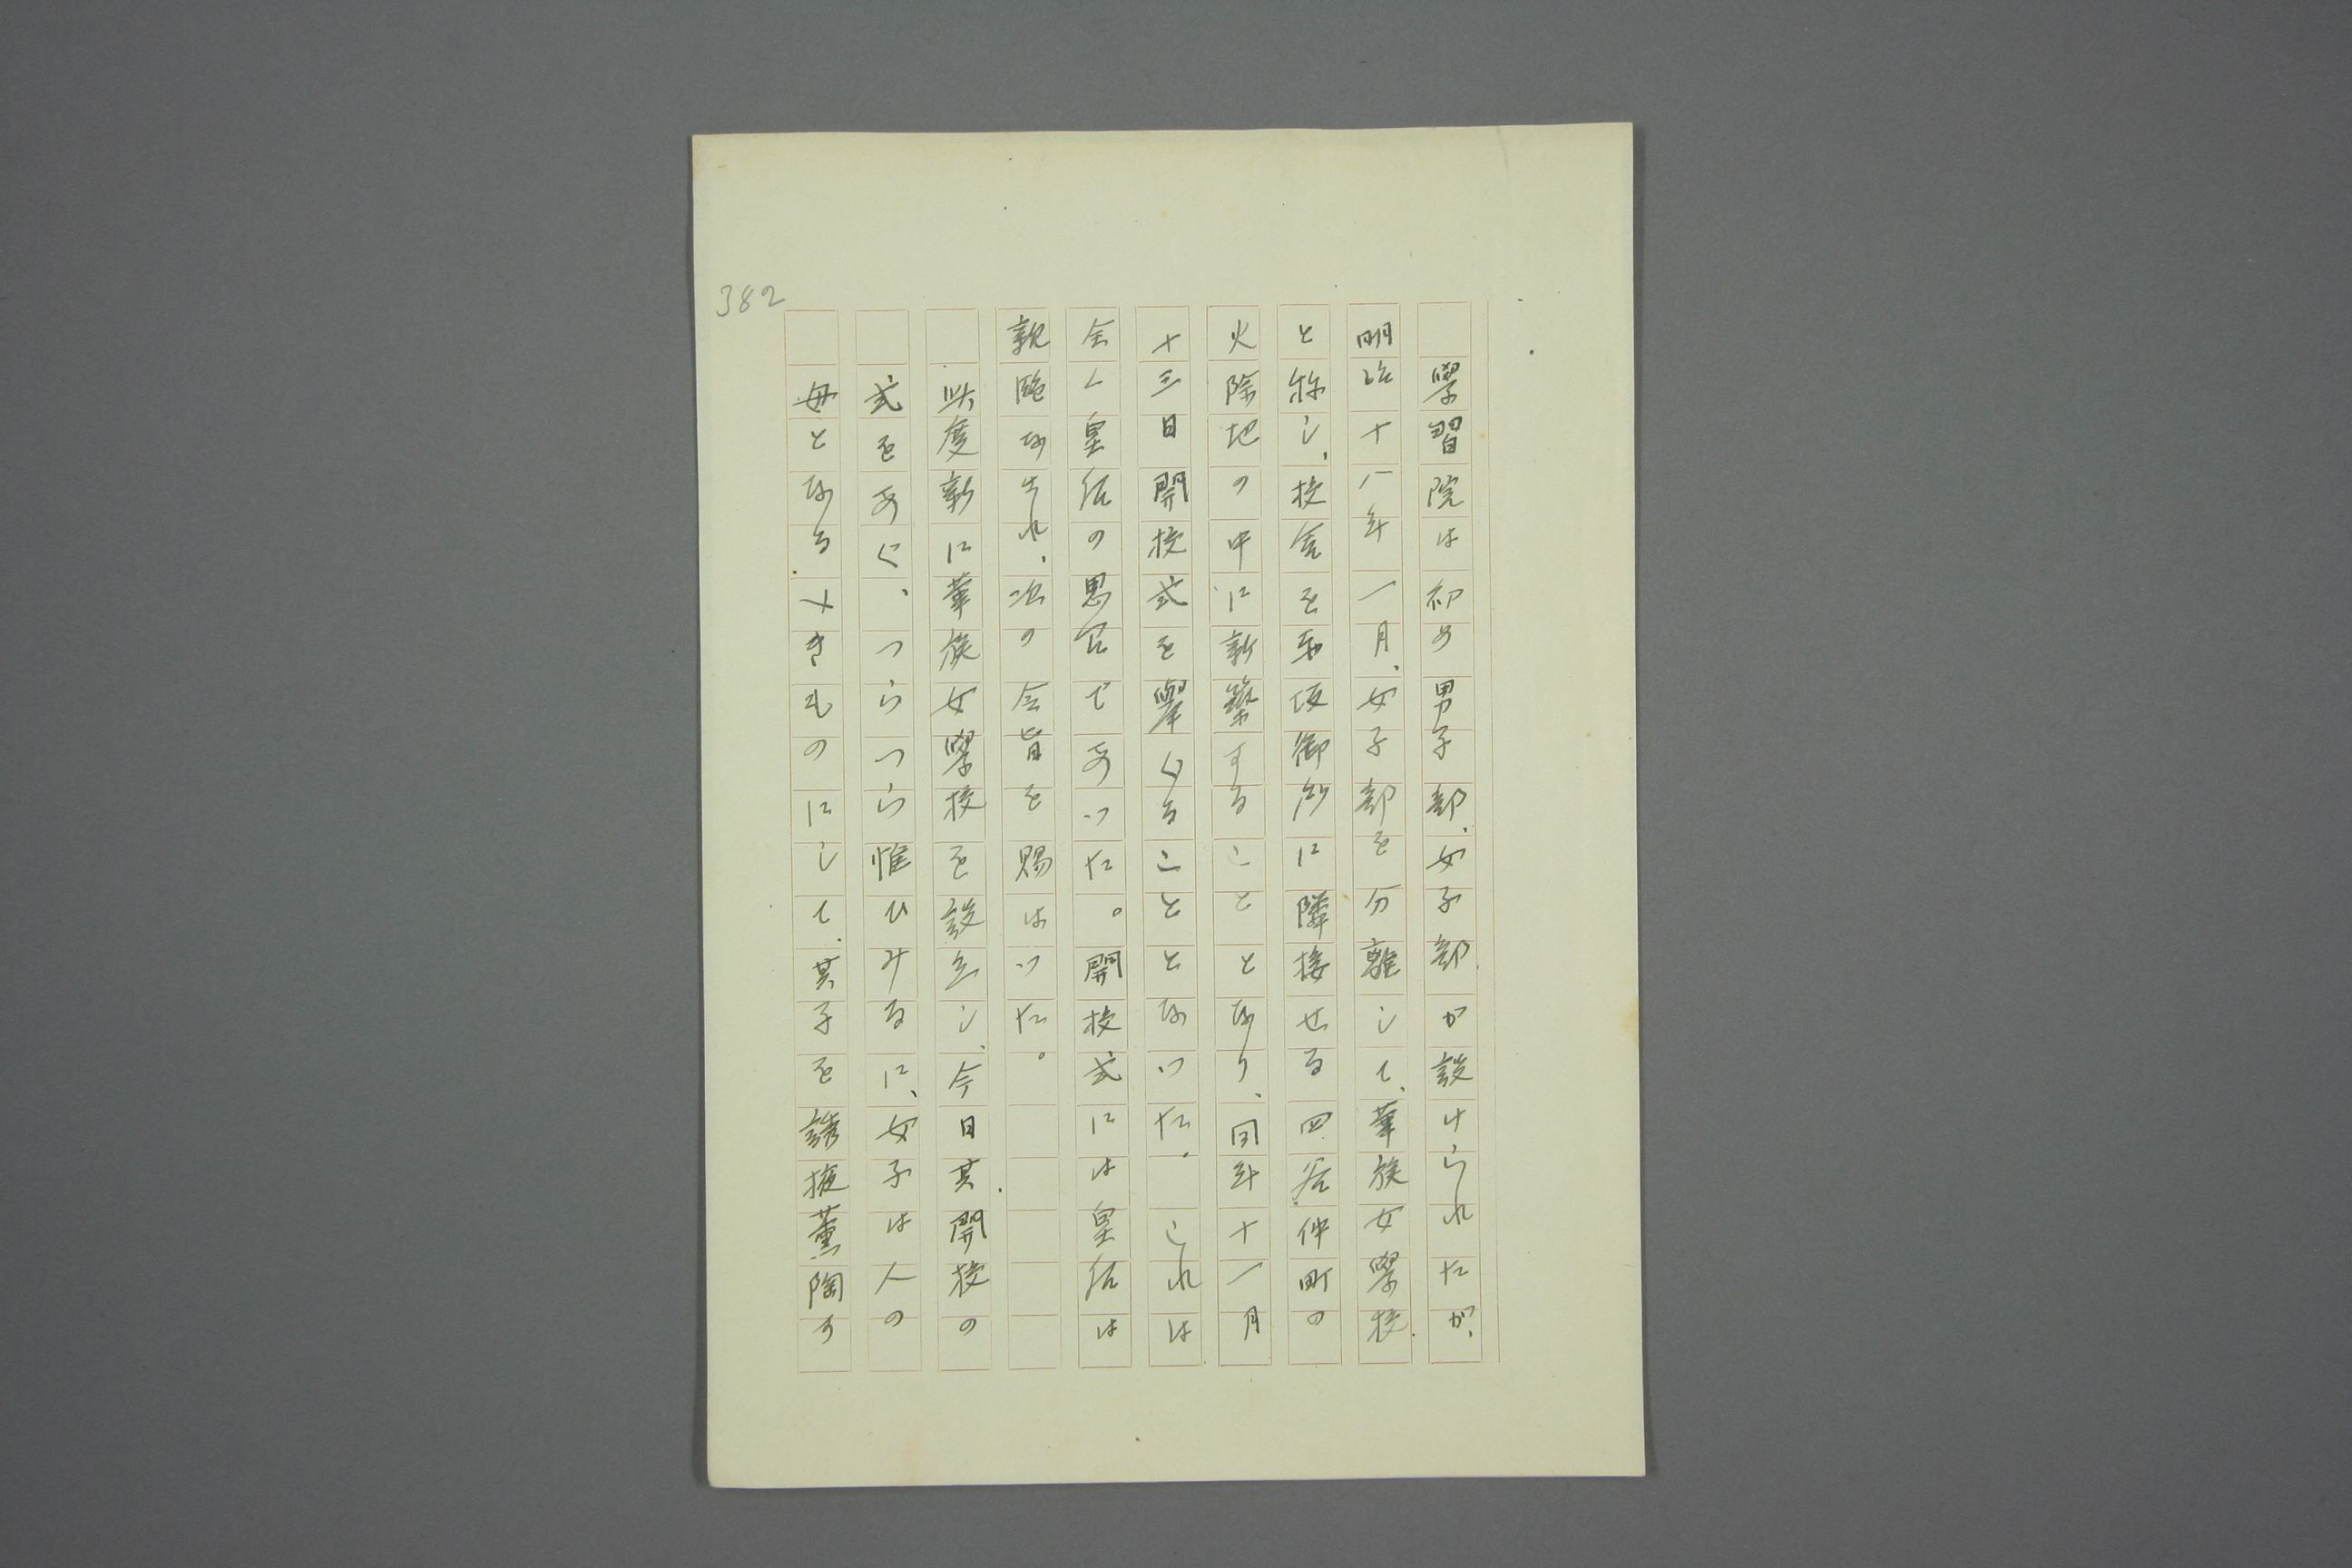 382
學習院は初め男子部、女子部が設けられたが、
明治十八年一月、女子部を分離して、華族女學校
と称し、校舎を赤坂御所に隣接せる四谷仲町の
火除地の中に新築することとなり、同年十一月
十三日開校式を擧ぐることとなつた。これは
全く皇后の思召であつた。開校式には皇后は
親臨なされ、次の令旨を賜はつた。
此度新に華族女學校を設立し、今日其開校の
式をあぐ、つらつら惟ひみるに、女子は人の
母となるべきものにして、其子を誘掖薫陶す